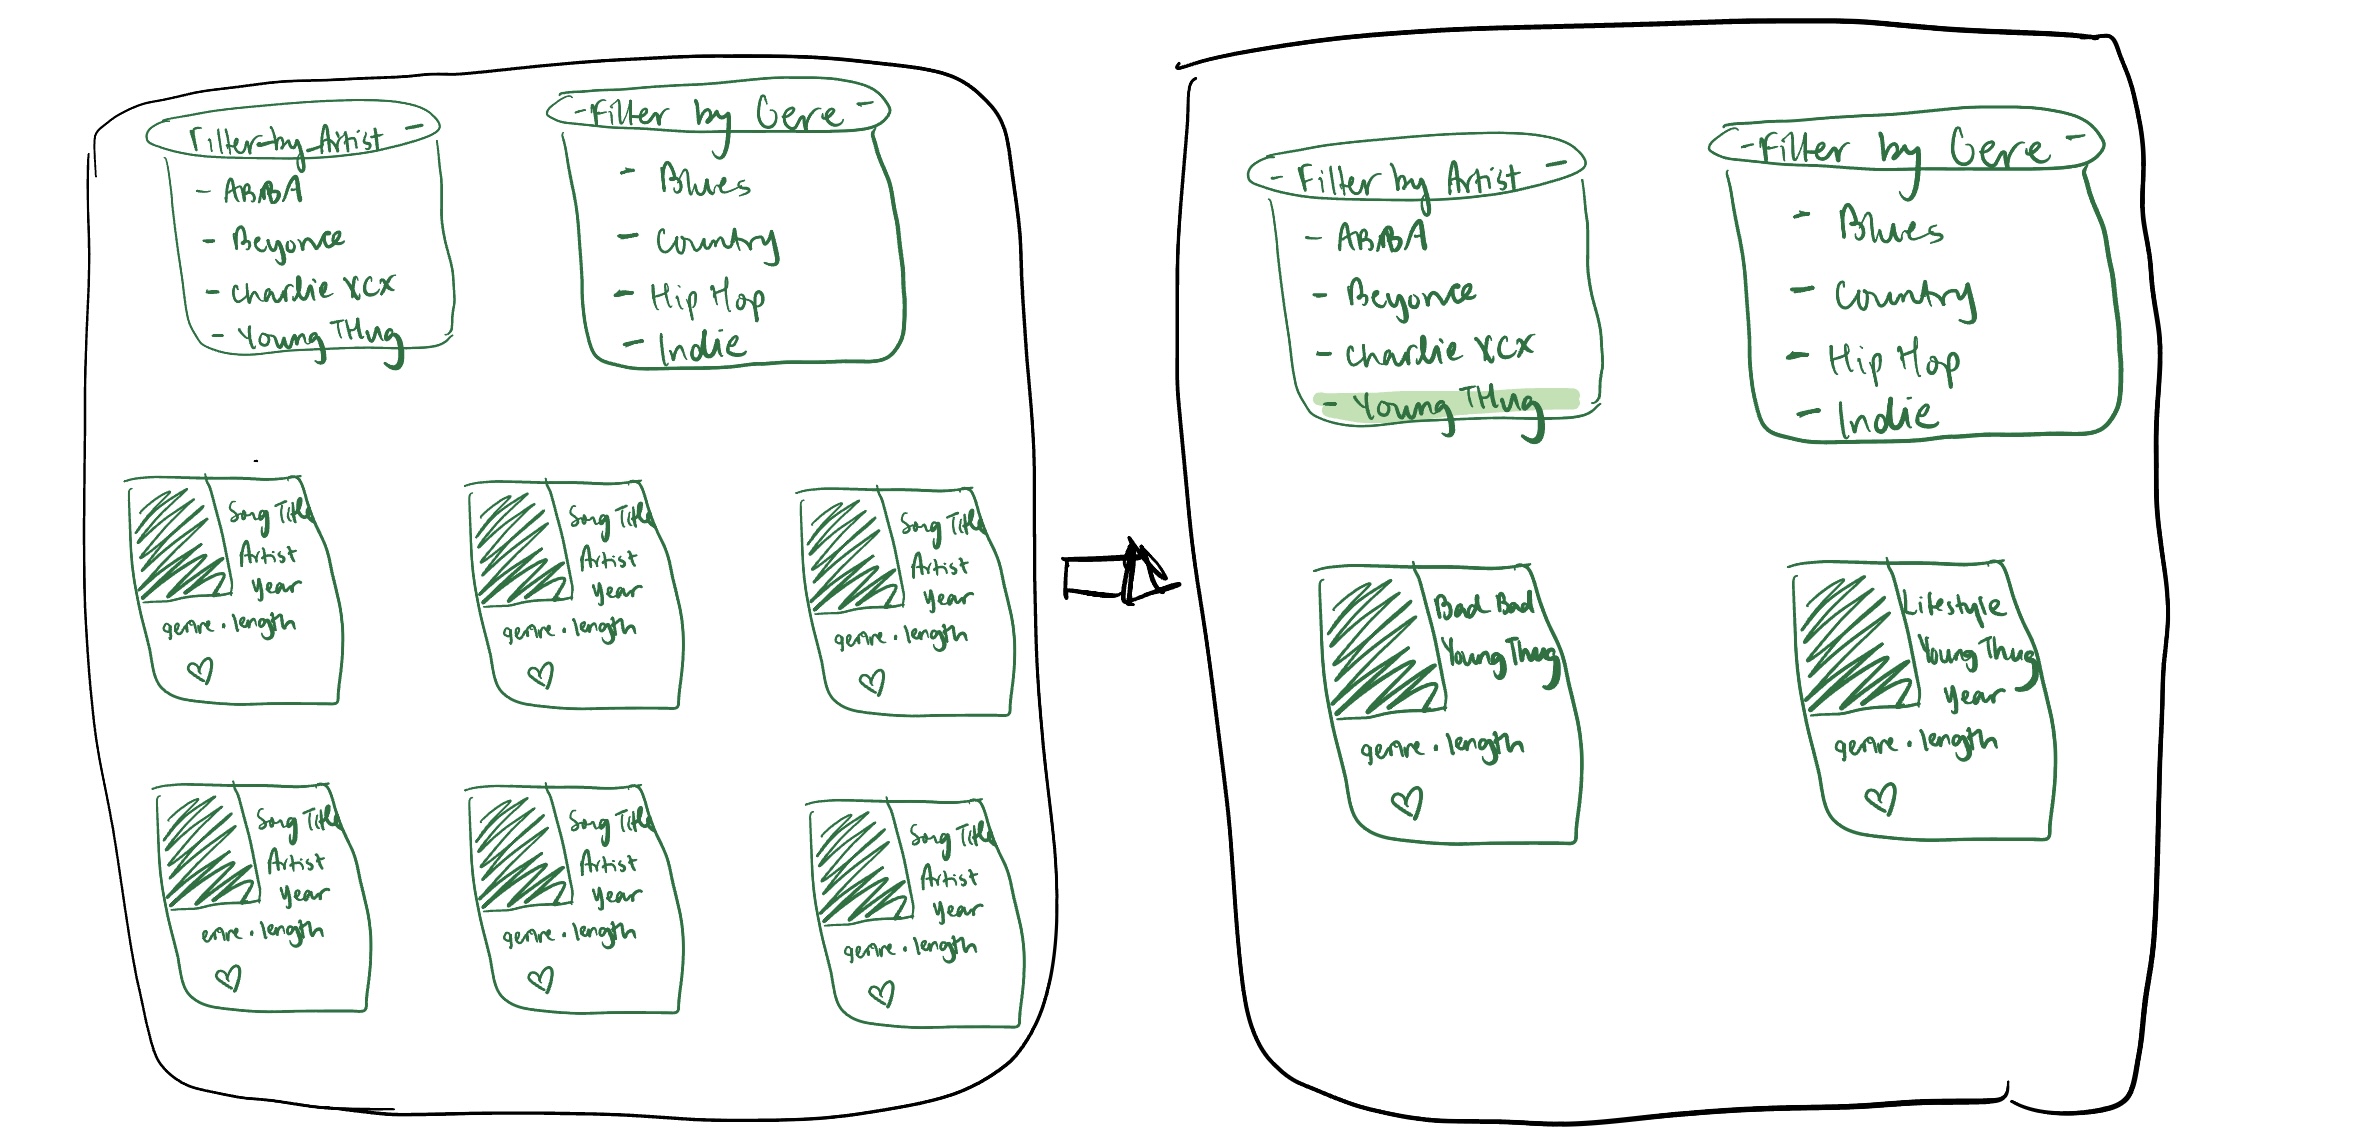 Filter by Artist -
- ABBA
- Beyonce
- Charlie XCX
- Young THug
- Filter by Gere -
- Blues
- Country
- Hip Hop
- Indie
Song Title
Artist
Year
genre . length
Song Title
Artist
Year
genre . length
Song Title
Artist
Year
genre . length
Song Title
Artist
Year
enre . length
Song Title
Artist
Year
genre . length
Song Title
Artist
Year
genre . length
- Filter by Artist -
- ABBA
- Beyonce
- Charlie XCX
- Young THug
- Filter by Gere -
- Blues
- Country
- Hip Hop
- Indie
Bad Bad
Young Thug
genre . length
Lifestyle
Young Thug
Year
genre . length